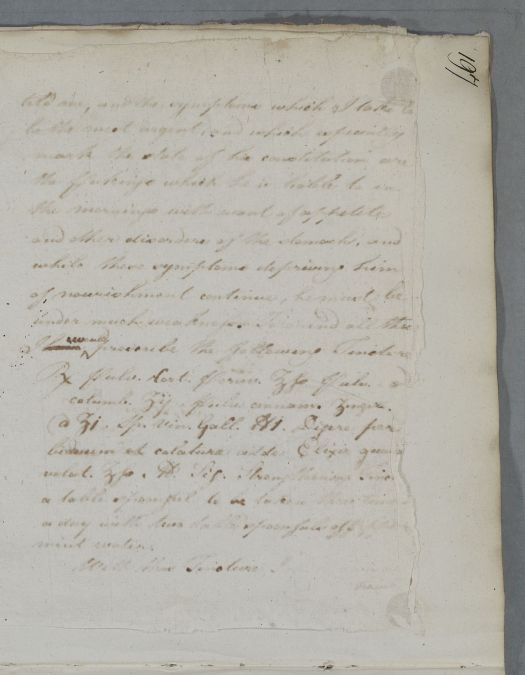 197
told me, and the symptoms which I take to
be the most urgent, and which especially
mark the state of his constitution are
the Pukings which he is liable to in
the mornings with want of appetite
and other disorders of the stomach, and
while these symptoms depriving him
of nourishment continue, he must be
under much weakness. To amend all this
would prescribe the following Tincture
Rx Pulv. Cort. Peruv. ℥ss Pulv.
columb. ʒij Pulv. cinnam. Zingib.
a ʒi. Sp. Vin. Gall. ℔i. Digere per
biduum et colaturae adde Elixir guaiac
volat. ℥ss M. Sig. Strengthening Tinct
a table spoonful to be taken three times
a day with two table spoonfuls of Pepper
mint water.
With this Tincture I